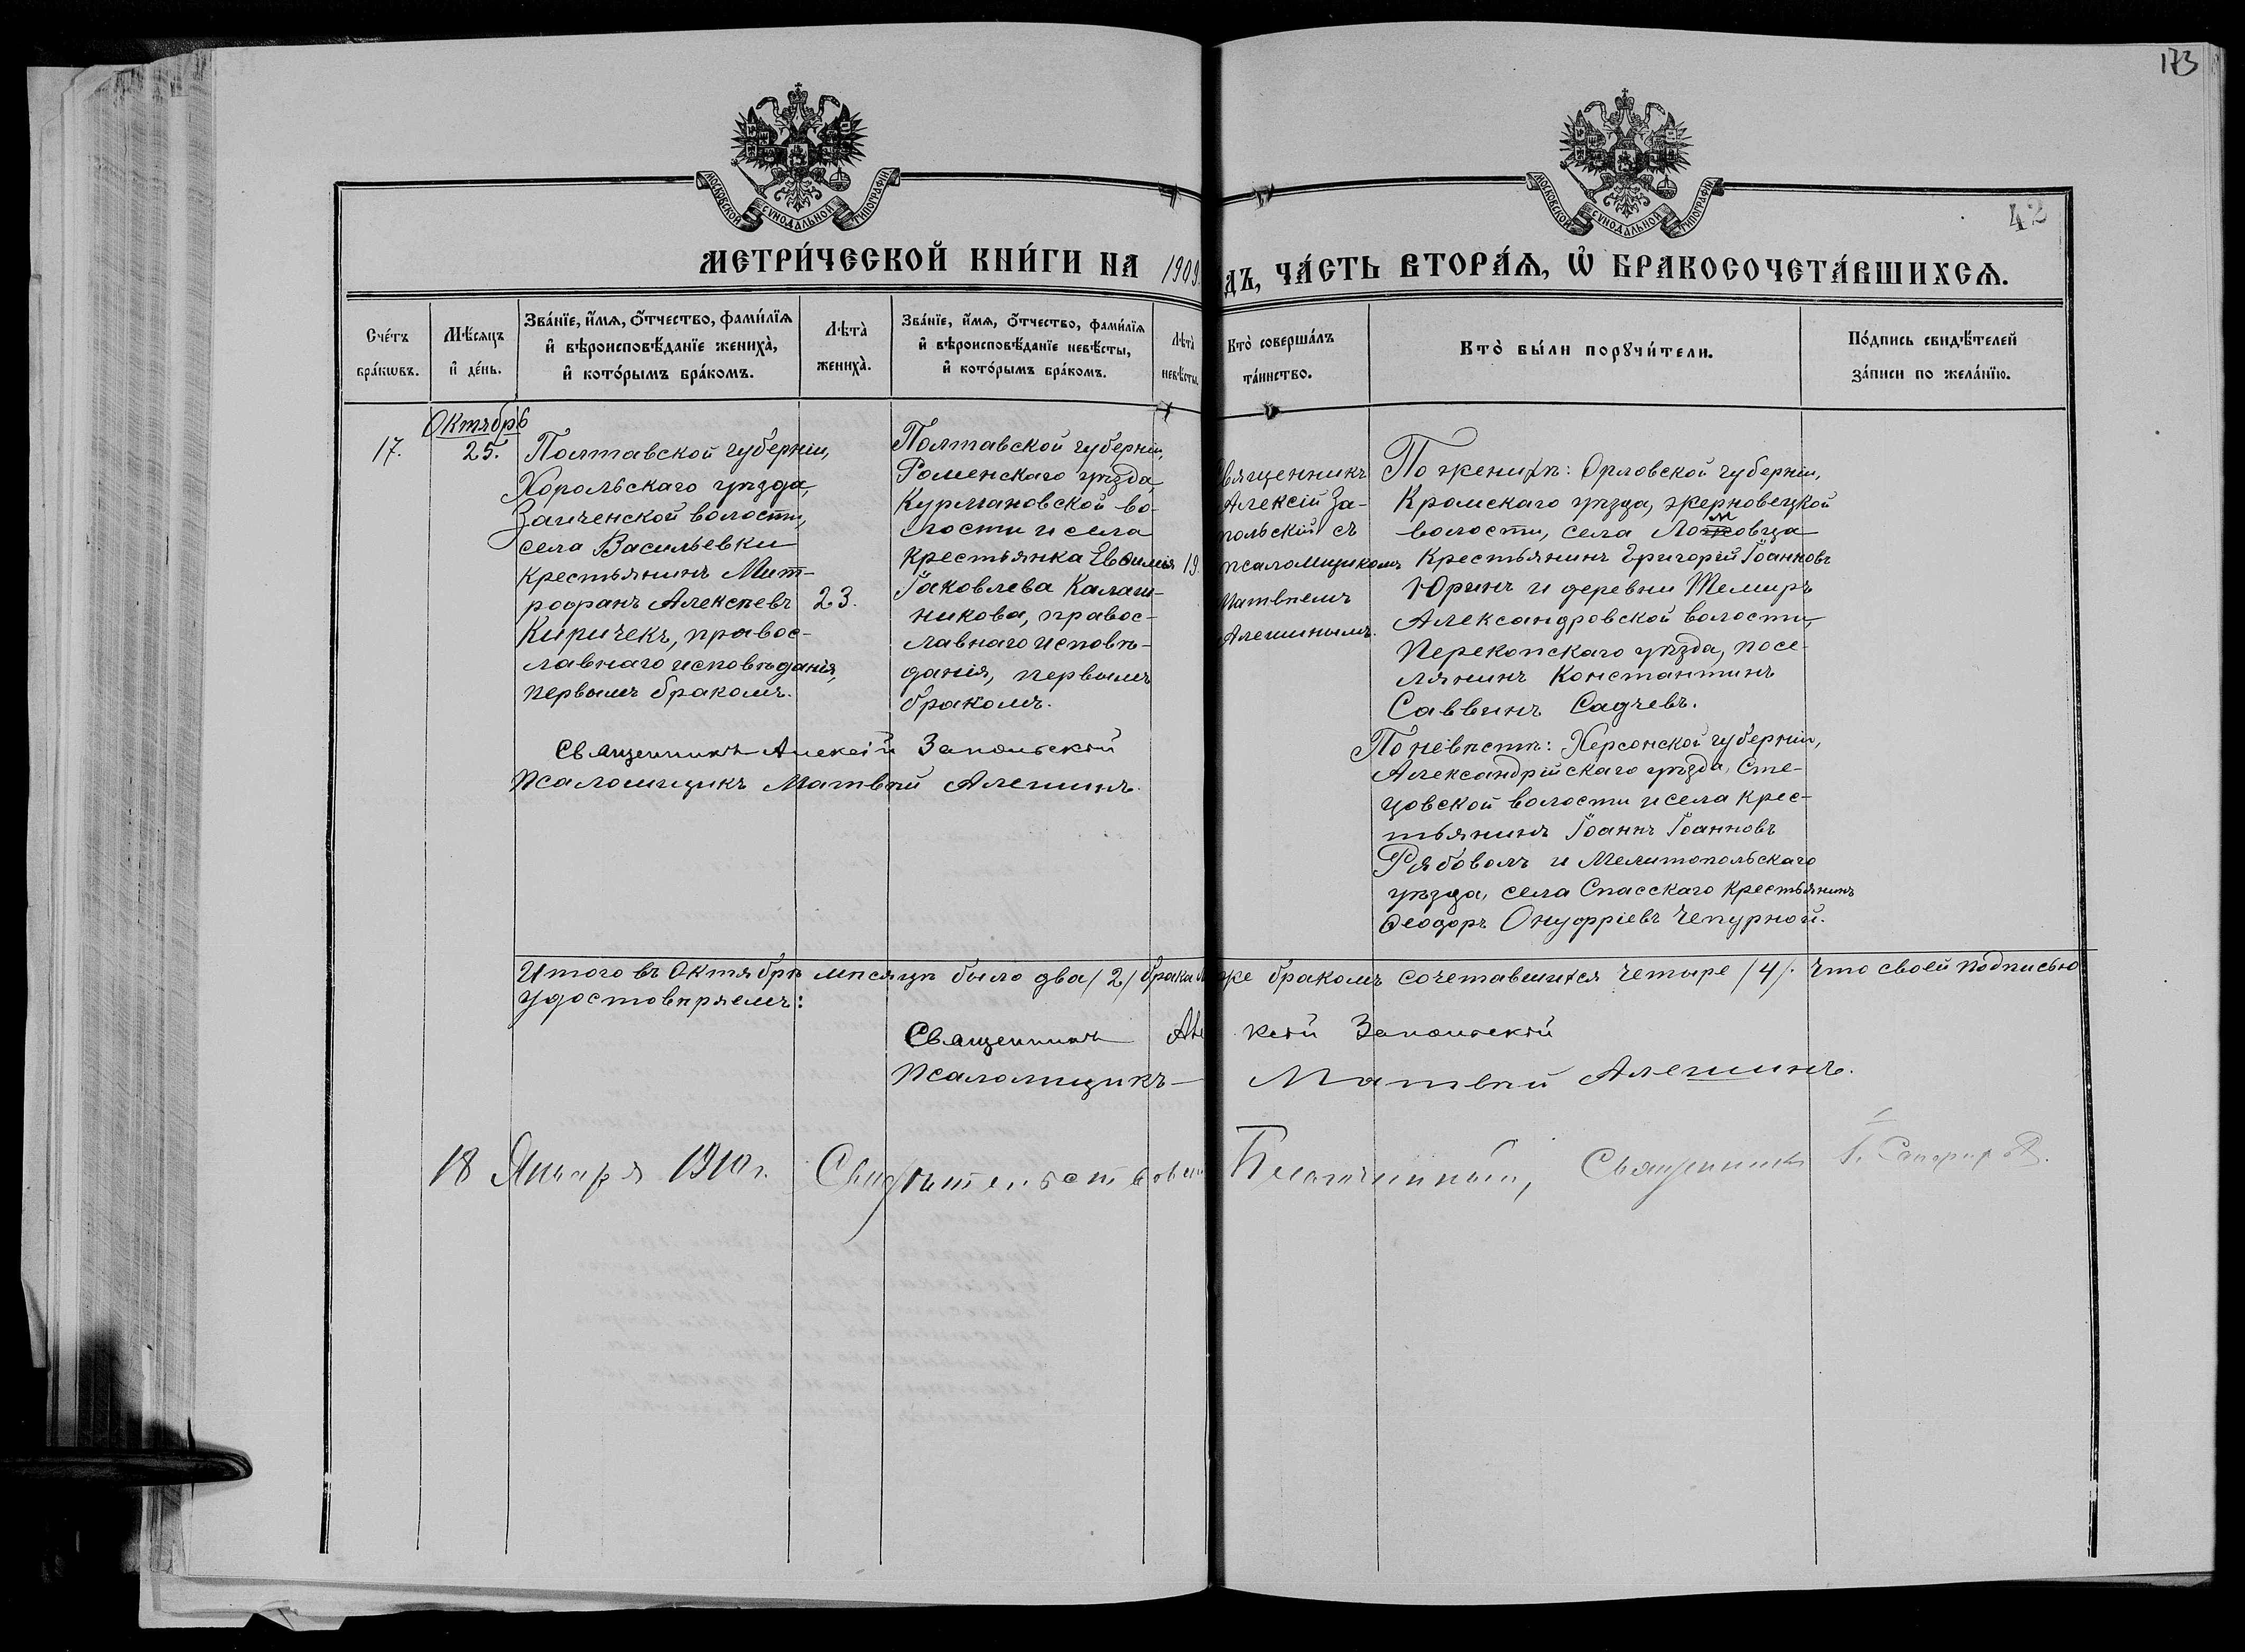 173
МОСКОВСКОЙ СѴНОДАЛЬНОЙ ТИПОГРАФІИ
МОСКОВСКОЙ СѴНОДАЛЬНОЙ ТИПОГРАФІИ
42
МЕТРИ́ЧЕСКОЙ КНИ́ГИ НА 1909
ДЪ, ЧА́СТЬ ВТОРА́Ѧ, Ѽ БРАКОСОЧЕТА́ВШИХСѦ.
Сче́тъ
бра́кѡвъ.
Мѣ́сяцъ
и҆ де́нь.
Зва́нїе, и҆́мѧ, ѻ҆́тчество, фами́лїѧ
и҆ вѣроисповѣ́данїе жениха̀,
и҆ кото́рымъ бра́комъ.
Лѣта̀
жениха̀.
Зва́нїе, и҆́мѧ, ѻ҆́тчество, фами́лїѧ
и҆ вѣроисповѣ́данїе невѣ́сты,
и҆ кото́рымъ бра́комъ.
Лѣта̀
невѣ́сты.
Кто̀ соверша́лъ
та́инство.
Кто̀ бы́ли порꙋчи́тели.
По́дпись свидѣ́телей
за́писи по жела́нїю.
Октябрь
17.
25.
Полтавской губерніи,
Хорольскаго уѣзда,
Заиченской волости,
села Васильевки
крестьянинъ Мит-
рофанъ Алексѣевъ
Киричекъ, правос-
лавнаго исповѣданія,
первымъ бракомъ.
23.
Полтавской губерніи,
Роменскаго уѣзда,
Курмановской во-
лости и села
крестьянка Евѳимія
Іаковлева Калаш-
никова, правос-
лавнаго исповѣ-
данія, первымъ
бракомъ.
19.
Священникъ
Алексій За-
польскій съ
псаломщикомъ
Матвѣемъ
Алешинымъ.
По женихѣ: Орловской губерніи,
Кромскаго уѣзда, Жерновецкой
волости, села Ломовца
крестьянинъ Григорій Іоанновъ
Юринъ и деревни Темиръ
Александровской волости,
Перекопскаго уѣзда, посе-
лянинъ Константинъ
Саввинъ Садчевъ.
По невѣстѣ: Херсонской губерніи,
Александрійскаго уѣзда, Сте-
цовской волости и села крес-
тьянинъ Іоаннъ Іоанновъ
Рябовалъ и Мелитопольскаго
уѣзда, села Спасскаго крестьянинъ
Ѳеодоръ Онуфріевъ Чепурной.
Священникъ Алексій Запольскій
Псаломщикъ Матвѣй Алешинъ.
Итого въ Октябрѣ мѣсяцѣ было два /2/ брака
же бракомъ сочетавшихся четыре /4/. Что своей подписью
удостовѣряемъ:
Священникъ Алексій Запольскій
Псаломщикъ Матвѣй Алешинъ.
18 Января 1910 г. Свидѣтельствовалъ Благочинный, Священникъ